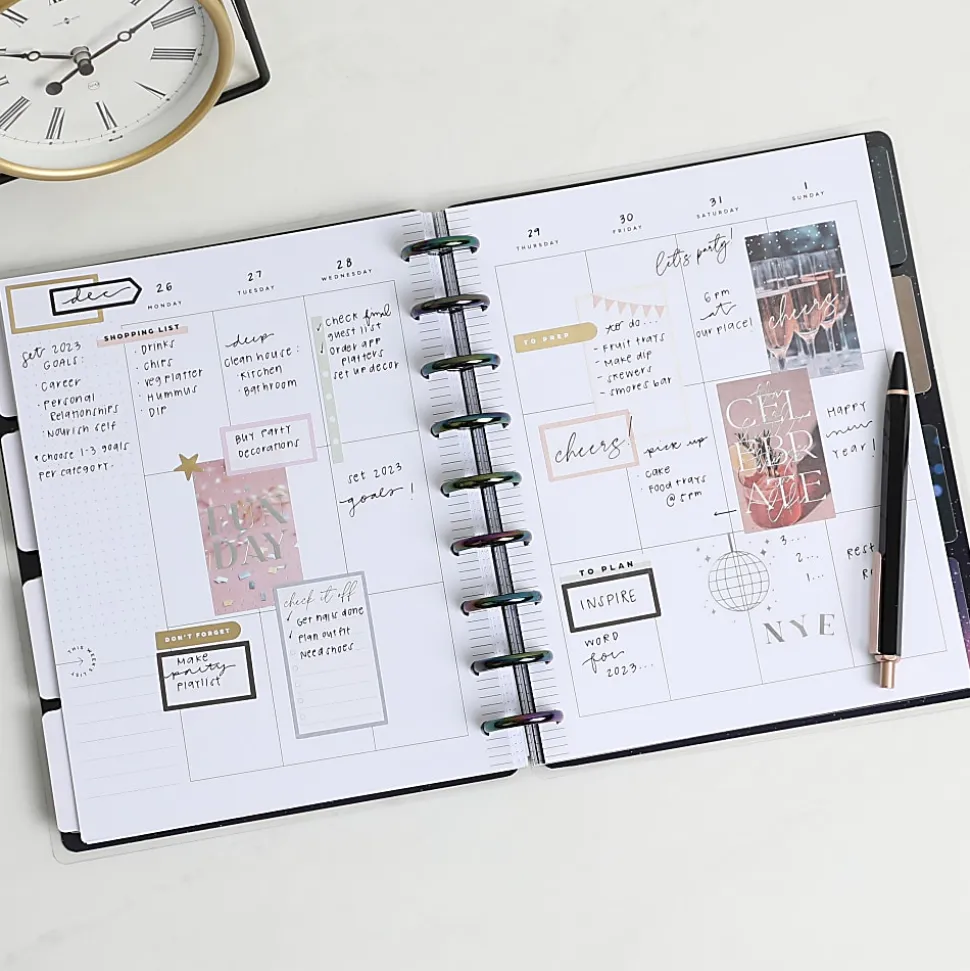 dec
set 2023
GOALS:
· Career
· Personal
Relationships
· Nourish self
* Choose 1-3 goals
per category.
THIS WEEK'S
26
MONDAY
SHOPPING LIST
· Drinks
· Chips
· Veg platter
· Hummus
· Dip
DON'T FORGET
Make
party
playlist
27
TUESDAY
deep
clean house:
· Kitchen
· Bathroom
BUY Party
Decorations
FUN
DAY
28
WEDNESDAY
check final
guest list
order app
platters
set up decor
set 2023
goals!
check it off
Get nails done
Plan outfit
Need shoes
29
THURSDAY
TO PREP
cheers!
TO PLAN
INSPIRE
WORD
for
2023...
30
FRIDAY
to do...
- Fruit trays
- Make dip
- skewers
- smores bar
pick up
cake
food trays
@ 5pm
31
SATURDAY
let's party!
6pm
at
our place!
CEL
EBR
ATE
3...
2...
1...
NYE
1
SUNDAY
cheers
HAPPY
new
Year!